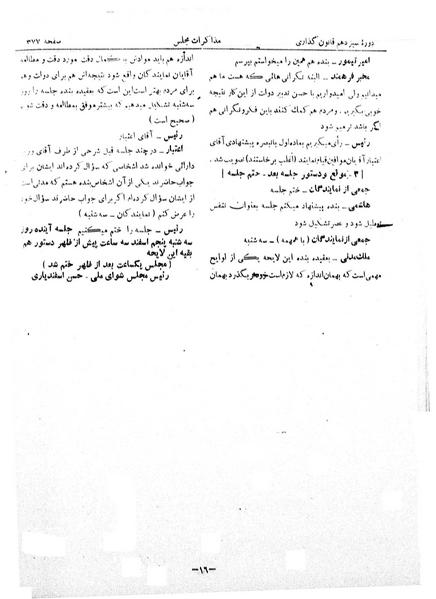 دورهٔ سیزدهم قانون گذاری
مذاکرات مجلس
صفحه ۳۷۷
امیر تیمور - بنده هم همین را میخواستم بپرسم
مخبر فرهمند - البته نگرانی هائی که هست ما هم
میدانیم ولی امیدواریم با حسن تدبیر دولت از این کار نتیجه
خوبی بگیریم. ومردم هم کمک کنند باین فکر و نگرانی هم
اگر باشد ترمیم شود
رئیس - رأی میگیریم بماده اول باتبصره پیشنهادی آقای
اعتبار آقایان موافقین قیام نمایند (اغلب برخاستند) تصویب شد.
[ ۳ - موقع و دستور جلسه بعد - ختم جلسه ]
جمعی از نمایندگان - ختم جلسه
هاشمی - بنده پیشنهاد میکنم جلسه بعنوان تنفس
تعطیل شود و عصر تشکیل شود
جمعی از نمایندگان (با همهمه) - سه شنبه
ملک مدنی - بعقیده بنده این لایحه یکی از لوایح
مهمی است که بهمان اندازه که لازم است خودش بگذرد بهمان
اندازه هم باید موادش با کمال دقت مورد دقت و مطالعه
آقایان نمایندگان واقع شود نتیجه اش هم برای دولت وهم
برای مردم بهتر است این است که بعقیده بنده جلسه را روز
سه شنبه تشکیل میدهیم که بیشتر موفق بمطالعه و دقت شویم
(صحیح است)
رئیس - آقای اعتبار
اعتبار - در چند جلسه قبل شرحی از طرف آقای وزیر
دارائی خوانده شد اشخاصی که سؤال کرده اند ایشان برای
جواب حاضرند یکی از آن اشخاص بنده هستم که مدتی است
از ایشان سؤال کرده ام اگر برای جواب حاضرند سؤال خود
را عرض کنم (نمایندگان - سه شنبه)
رئیس - جلسه را ختم میکنیم جلسه آینده روز
سه شنبه پنجم اسفند سه ساعت پیش از ظهر دستور هم
بقیه این لایحه
(مجلس یکساعت بعد از ظهر ختم شد)
رئیس مجلس شورای ملی - حسن اسفندیاری
-۱۶-